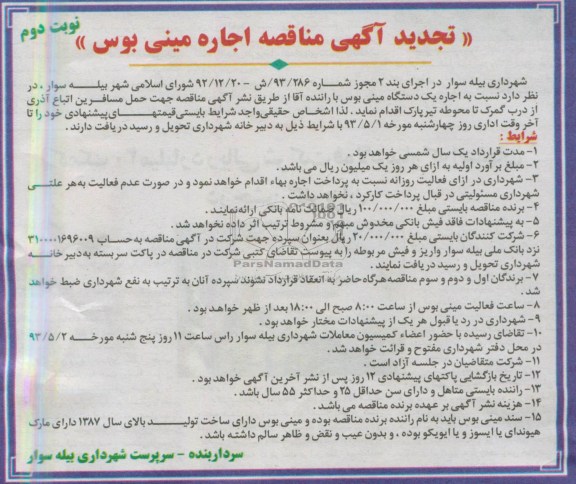 نوبت دوم
« تجدید آگهی مناقصه اجاره مینی بوس »
شهرداری بیله سوار در اجرای بند ۲ مجوز شماره ۹۳/۲۸۶/ش - ۹۲/۱۲/۲۰ شورای اسلامی شهر بیله سوار ، در
نظر دارد نسبت به اجاره یک دستگاه مینی بوس با راننده آقا از طریق نشر آگهی مناقصه جهت حمل مسافرین اتباع آذری
از درب گمرک تا محوطه تیر پارک اقدام نماید . لذا اشخاص حقیقی واجد شرایط بایستی قیمتهای پیشنهادی خود را تا
آخر وقت اداری روز چهارشنبه مورخه ۹۳/۵/۱ با شرایط ذیل به دبیر خانه شهرداری تحویل و رسید دریافت دارند .
شرایط :
۱- مدت قرارداد یک سال شمسی خواهد بود .
۲- مبلغ بر آورد اولیه به ازای هر روز یک میلیون ریال می باشد .
۳- شهرداری در ازای فعالیت روزانه نسبت به پرداخت اجاره بهاء اقدام خواهد نمود و در صورت عدم فعالیت به هر علتی
شهرداری مسئولیتی در قبال پرداخت کارکرد ، نخواهد داشت .
۴- برنده مناقصه بایستی مبلغ ۱۰۰/۰۰۰/۰۰۰ ریال ضمانت نامه بانکی ارائه نمایند .
۵- به پیشنهادات فاقد فیش بانکی مخدوش مبهم و مشروط ترتیب اثر داده نخواهد شد .
۶- شرکت کنندگان بایستی مبلغ ۲۰/۰۰۰/۰۰۰ ریال بعنوان سپرده جهت شرکت در آگهی مناقصه به حساب ۳۱۰۰۰۰۱۶۹۶۰۰۹
نزد بانک ملی بیله سوار واریز و فیش مربوطه را به پیوست تقاضای کتبی شرکت در مناقصه در پاکت سربسته به دبیرخانه
شهرداری تحویل و رسید دریافت نمایند .
ParsNamadData
۷- برندگان اول و دوم و سوم مناقصه هرگاه حاضر به انعقاد قرارداد نشوند سپرده آنان به ترتیب به نفع شهرداری ضبط خواهد
شد .
۸- ساعت فعالیت مینی بوس از ساعت ۸:۰۰ صبح الی ۱۸:۰۰ بعد از ظهر خواهد بود .
۹- شهرداری در رد یا قبول هر یک از پیشنهادات مختار خواهد بود .
۱۰- تقاضای رسیده با حضور اعضاء کمیسیون معاملات شهرداری بیله سوار راس ساعت ۱۱ روز پنج شنبه مورخه ۹۳/۵/۲
در محل دفتر شهرداری مفتوح و قرائت خواهد شد .
۱۱- شرکت متقاضیان در جلسه آزاد است .
۱۲- تاریخ بازگشایی پاکتهای پیشنهادی ۱۲ روز پس از نشر آخرین آگهی خواهد بود .
۱۳- راننده بایستی متاهل و دارای سن حداقل ۲۵ و حداکثر ۵۵ سال باشد .
۱۴- هزینه نشر آگهی بر عهده برنده مناقصه می باشد .
۱۵- سند مینی بوس باید به نام راننده برنده مناقصه بوده و مینی بوس دارای ساخت تولید بالای سال ۱۳۸۷ دارای مارک
هیوندای یا ایسوز و یا ایویکو بوده ، و بدون عیب و نقض و ظاهر سالم داشته باشد .
سردار بنده - سرپرست شهرداری بیله سوار